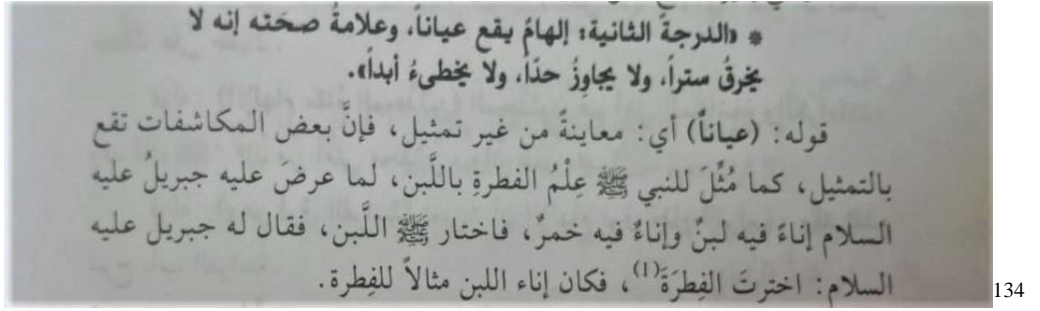 * «الدرجة الثانية: إلهامٌ يقع عياناً، وعلامةُ صحَته إنه لا
يخرقُ ستراً، ولا يجاوِزُ حدّاً، ولا يخطىءُ أبداً».
قوله: (عياناً) أي: معاينةً من غير تمثيل، فإنَّ بعض المكاشفات تقع
بالتمثيل، كما مُثِّلَ للنبي ﷺ عِلْمُ الفطرةِ باللَّبن، لما عرضَ عليه جبريلُ عليه
السلام إناءً فيه لبنٌ وإناءٌ فيه خمرٌ، فاختار ﷺ اللَّبن، فقال له جبريل عليه
السلام: اخترتَ الفِطرَةَ(1)، فكان إناء اللبن مثالاً للفِطرة.
134